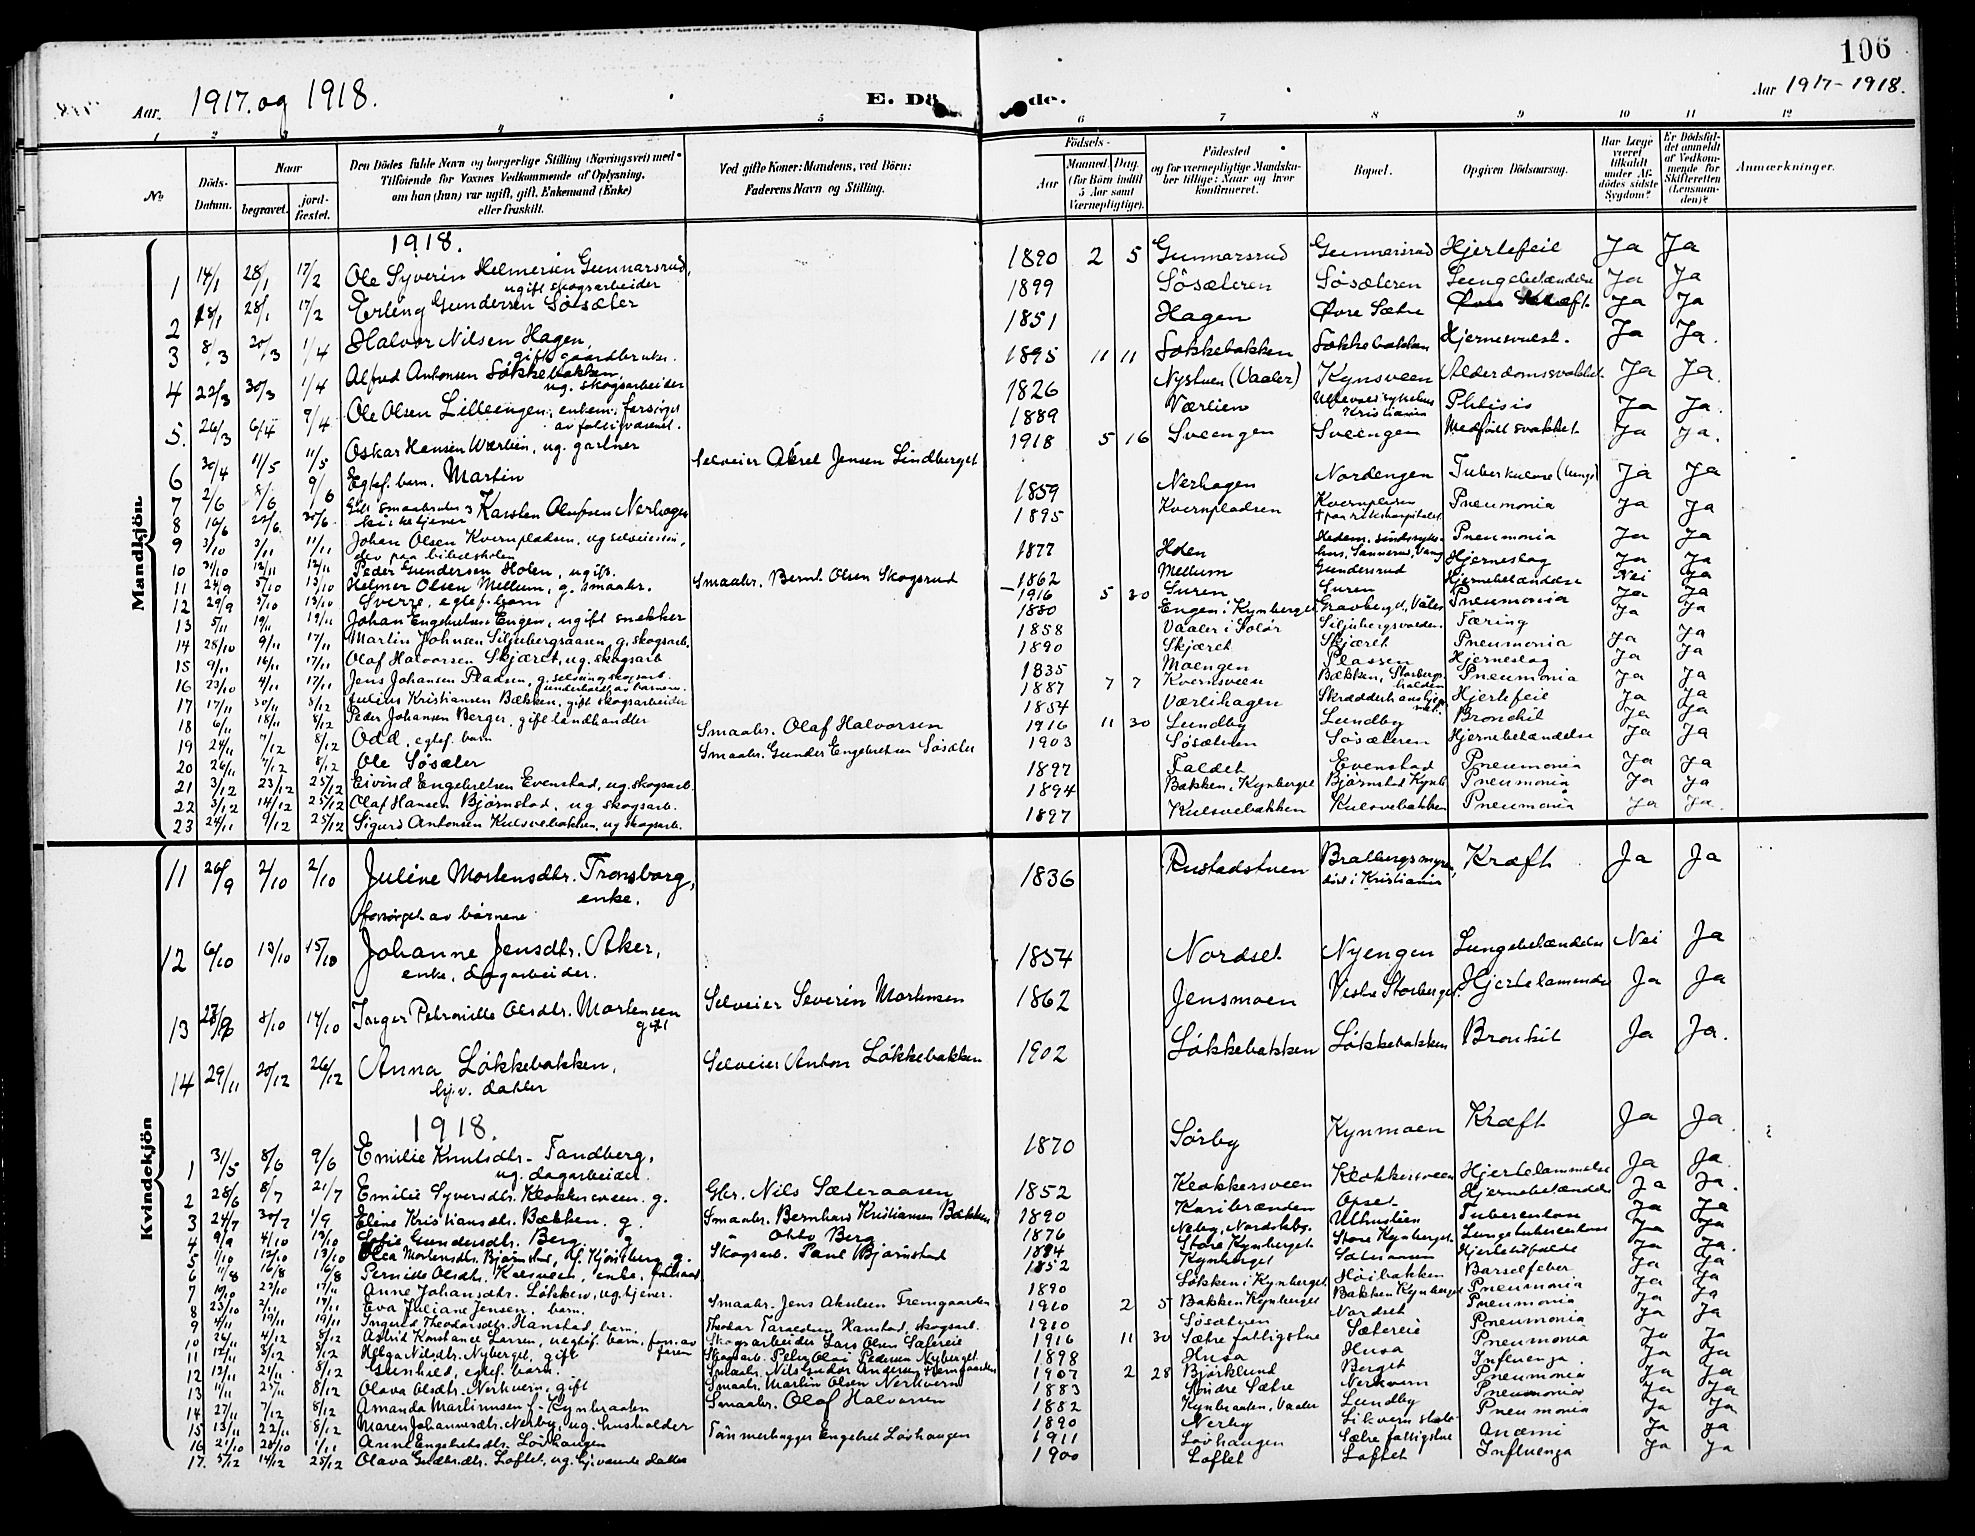 106
Aar. 1917. og 1918.
E. Dö de.
Aar 1917-1918.
1 2 3 4 5 6 7 8 9 10 11 12
No
Döds-Datum.
Naar
begravet.
jordfæstet.
Den Dödes fulde Navn og borgerlige Stilling (Næringsvei) med Tilföiende for Voxnes Vedkommende af Oplysning, om han (hun) var ugift, gift, Enkemand (Enke) eller fraskilt.
Ved gifte Koner: Mandens, ved Börn: Faderens Navn og Stilling.
Födsels-
Aar
Maaned Dag
(for Börn indtil 5 Aar samt Værnepligtige).
Födested og for værnepligtige Mandskaber tillige: Naar og hvor konfirmeret.
Bopæl.
Opgiven Dödsaarsag.
Har Læge været tilkaldt under Afdödes sidste Sygdom?
Er Dödsfaldet anmeldt af Vedkommende for Skifteretten (Lensmanden)?
Anmærkninger.
Mandkjön
1918.
1 14/1 28/1 17/2 Ole Syverin Helmersen Gunnarsrud, ugift skogsarbeider 1890 2 5 Gunnarsrud Gunnarsrud Hjertefeil Ja Ja
2 18/1 28/1 17/2 Erling Gundersen Söisæter 1899 Sösæteren Søsæteren Lungebetændelse Ja Ja
3 8/3 20/3 1/4 Halvor Nilsen Hagen, gift gaardbruker. 1851 Hagen Øvre Sætre Kræft Ja Ja
4 22/3 30/3 1/4 Alfred Antonsen Løkkebakken, ug. skogsarbeider 1895 11 11 Løkkebakken Løkkebakken Hjernesvulst. Ja Ja.
5. 26/3 6/4 9/4 Ole Olsen Lilleengen, enkem. forsörget av fattigvæsenet. 1826 Nystuen (Vaaler) Kynsveen Alderdomssvakhet Ja Ja.
6 30/4 11/5 11/5 Oskar Hansen Værlien, ug. gartner 1889 Værlien Ullevaal sykehus Kristiania Phtisis Ja Ja.
7 2/6 8/6 9/6 Egtef. barn. Martin Selveier Aksel Jensen Lindberget 1918 5 16 Sveengen Sveengen Medfödt svakhet Ja Ja.
8 16/6 22/6 30/6 Gift smaabruker & kirketjener Karsten Olufsen Nerhagen 1859 Nerhagen Nordengen Tuberkulose (lunge) Ja Ja
9 3/10 3/11 11/11 Johan Olsen Kvernpladsen, ug. selveiersøn, elev paa bibelskolen 1895 Kvernpladsen Kvernpladsen † paa rikshospitalet Pneumonia Ja Ja
10 31/10 12/11 12/11 Peder Gundersen Holen, ugift. 1877 Holen Hedem. sindssykehus, Sannerud, Vang Pneumonia Ja Ja
11 24/9 5/10 13/10 Helmer Olsen Mellum, g. smaabr. 1862 Mellum Gundersrud Hjerneslag Ja Ja
12 29/9 5/10 13/10 Sverre, egtef. barn Smaabr. Bernt Olsen Skogsrud 1916 5 30 Furen Furen Hjernebetændelse Nei Ja
13 5/11 19/11 19/11 Johan Engebretsen Engen, ugift snekker 1880 Engen i Kynberget Gravberget, Vaaler Pneumonia Ja Ja
14 28/10 9/11 17/11 Martin Johnsen Siljubergsaasen, g. skogsarb. 1858 Vaaler i Solør Siljubergsvolden Tæring Ja Ja
15 9/11 16/11 17/11 Olaf Halvorsen Skjæret, ug. skogsarb 1890 Skjæret Skjæret Pneumonia Ja Ja
16 23/10 4/11 17/11 Jens Johansen Pladsen, g. skogsarb. underholdt av barnene. 1835 Moengen Plassen Hjerneslag Ja Ja
17 17/11 30/11 8/12 Julius Kristiansen Bækken, gift skogsarbeider 1887 7 7 Kvernsveen Bækken, Storberget Pneumonia Ja Ja
18 6/11 18/11 8/12 Peder Johansen Berger, gift landhandler 1854 Værlihagen Hjertefeil Ja Ja
19 24/11 7/12 8/12 Odd, egtef. barn Smaabr. Olaf Halvorsen 1916 11 30 Lundby Lundby Bronchit Ja Ja
20 26/11 7/12 8/12 Ole Søsæter Smaabr. Gunder Engebretsen Søsæter 1903 Søsæteren Søsæteren Hjernebetændelse Ja Ja
21 3/12 23/12 25/12 Eivind Engebretsen Evenstad, ug. skogsarb. 1897 Faldet Evenstad Pneumonia Ja Ja
22 3/12 14/12 25/12 Olaf Hansen Bjørnstad, ug skogsarb. 1894 Bakken, Kynberget Bjørnstad Kynb. Pneumonia Ja Ja
23 24/11 9/12 25/12 Sigurd Antonsen Kulsvebakken, ug skogsarb. 1897 Kulsvebakken Kulsvebakken Pneumonia Ja Ja.
Kvindekjön
11 26/9 2/10 2/10 Juline Mortensdtr. Tronsborg, enke. forsörget av barnene 1836 Rustadstuen Bratbergsmyren, död i Kristiania Kræft Ja Ja
12 6/10 13/10 15/10 Johanne Jensdtr. Aker, enke, dagarbeider. 1854 Nordset Nyengen Lungebetændelse Nei Ja
13 8/10 14/10 Inger Petronille Olsdtr. Mortensen gift Selveier Severin Mortensen 1862 Jensmoen Vestre Storberget. Hjertelammelse Ja Ja
14 29/11 20/12 26/12 Anna Løkkebakken, hj. v. datter Selveier Anton Løkkebakken 1902 Løkkebakken Løkkebakken Bronkit Ja Ja.
1918.
1 31/5 8/6 9/6 Emilie Knutsdtr. Tandberg, ug. dagarbeider. 1870 Sørby Kynmoen Kræft Ja Ja.
2 28/6 8/7 21/7 Emilie Syversdtr. Klokkersveen. g. Gbr. Nils Sæteraasen 1852 Klokkersveen Klokkersveen Hjertelammelse Ja Ja.
3 24/7 30/7 1/9 Eline Kristiansdtr. Bækken. g. Smaabr. Bernhard Kristiansen Bækken 1890 Karibrænden Opset Hjernebetændelse Ja Ja.
4 9/9 4/10 13/10 Sofie Gundersdtr. Berg. g Otto Berg 1876 Neby, Nordskby. Ulhustien Tuberculose Ja Ja
5 1/10 12/10 13/10 Olea Mortensdtr. Bjørnstad, g. Skogsarb. Paul Bjørnstad 1884 Store Kynberget Store Kynberget Lungetuberculose Ja Ja
6 11/8 16/8 16/8 Pernille Olsdtr. enke, 1852 Kynberget Sæteraasen Hjertetilfælde Ja Ja.
7 10/10 22/10 17/11 Anne Johansdtr. Løkken, ug. tjener. 1890 Løkken i Kynberget Høibakken Barselfeber Ja Ja
8 23/10 2/11 17/11 Eva Juliane Jensen, barn. Smaabr. Jens Akselsen Fremgaarden 1910 2 5 Bakken Kynberget Bakken Kynberget Pneumonia Ja Ja
9 4/11 19/11 19/11 Ingrid Theodorsdtr. Hanstad, barn. Theodor Taraldsen Hanstad, skogsarb. 1910 Søsætren Nordset Pneumonia Ja Ja
10 26/11 4/12 8/12 Astrid Konstance Larsen, uegtef. barn, fors. av faren Skogsarbeider Lars Olsen Sætereie 1916 11 30 Sætre fattigstue Sætereie Pneumonia Ja Ja
11 12/11 3/12 8/12 Helga Nilsdtr. Nyberget, gift Skogsarb. Peder Olai Pedersen Nyberget 1898 Husa Husa Pneumonia Ja Ja
12 12/11 21/11 8/12 Gunhild, egtef. barn. Smaabr. Nils Andersen 1907 2 28 Bjørklund Berget Influenza. Ja Ja
13 11/11 25/11 8/12 Olava Olsdtr. Nerkvern, gift Smaabr. Martin Olsen Nerkvern 1883 Søndre Sætre Nerkvern Pneumonia Ja Ja
14 27/11 7/12 8/12 Amanda Martinusen f. Kynbraaten Smaabr. Olaf Halvorsen 1882 Kynbraaten, Vaaler Lundby Pneumonia Ja Ja
15 13/11 22/11 8/12 Maren Johannesdtr. Nerby, ug. husholder 1890 Nerby Pneumonia Ja Ja
16 21/10 28/10 1/11 Anne Engebretsdtr. Løvhaugen Tømmerhugger Engebret Løvhaugen 1911 Løvhaugen Sætre fattigstue Anæmi Ja Ja
17. 5/12 14/12 25/12 Olava Gudbrdtr. Loftet, ug. hj.værende datter 1900 Loftet Loftet Influenza Ja Ja